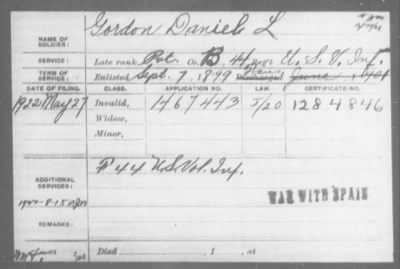 NAME OF SOLDIER: Gordon Daniel L
SERVICE: Late rank, Pvt. Co. B, 44 Reg't U.S.V. Inf.
TERM OF SERVICE: Enlisted Sept. 7, 1899 Discharged June 1901
DATE OF FILING. CLASS. APPLICATION NO. LAW. CERTIFICATE NO.
1922 May 27 Invalid, 1467443 5/20 1284846
Widow,
Minor,
F 44 U.S. Vol. Inf.
ADDITIONAL SERVICES:
WAR WITH SPAIN
REMARKS:
Died